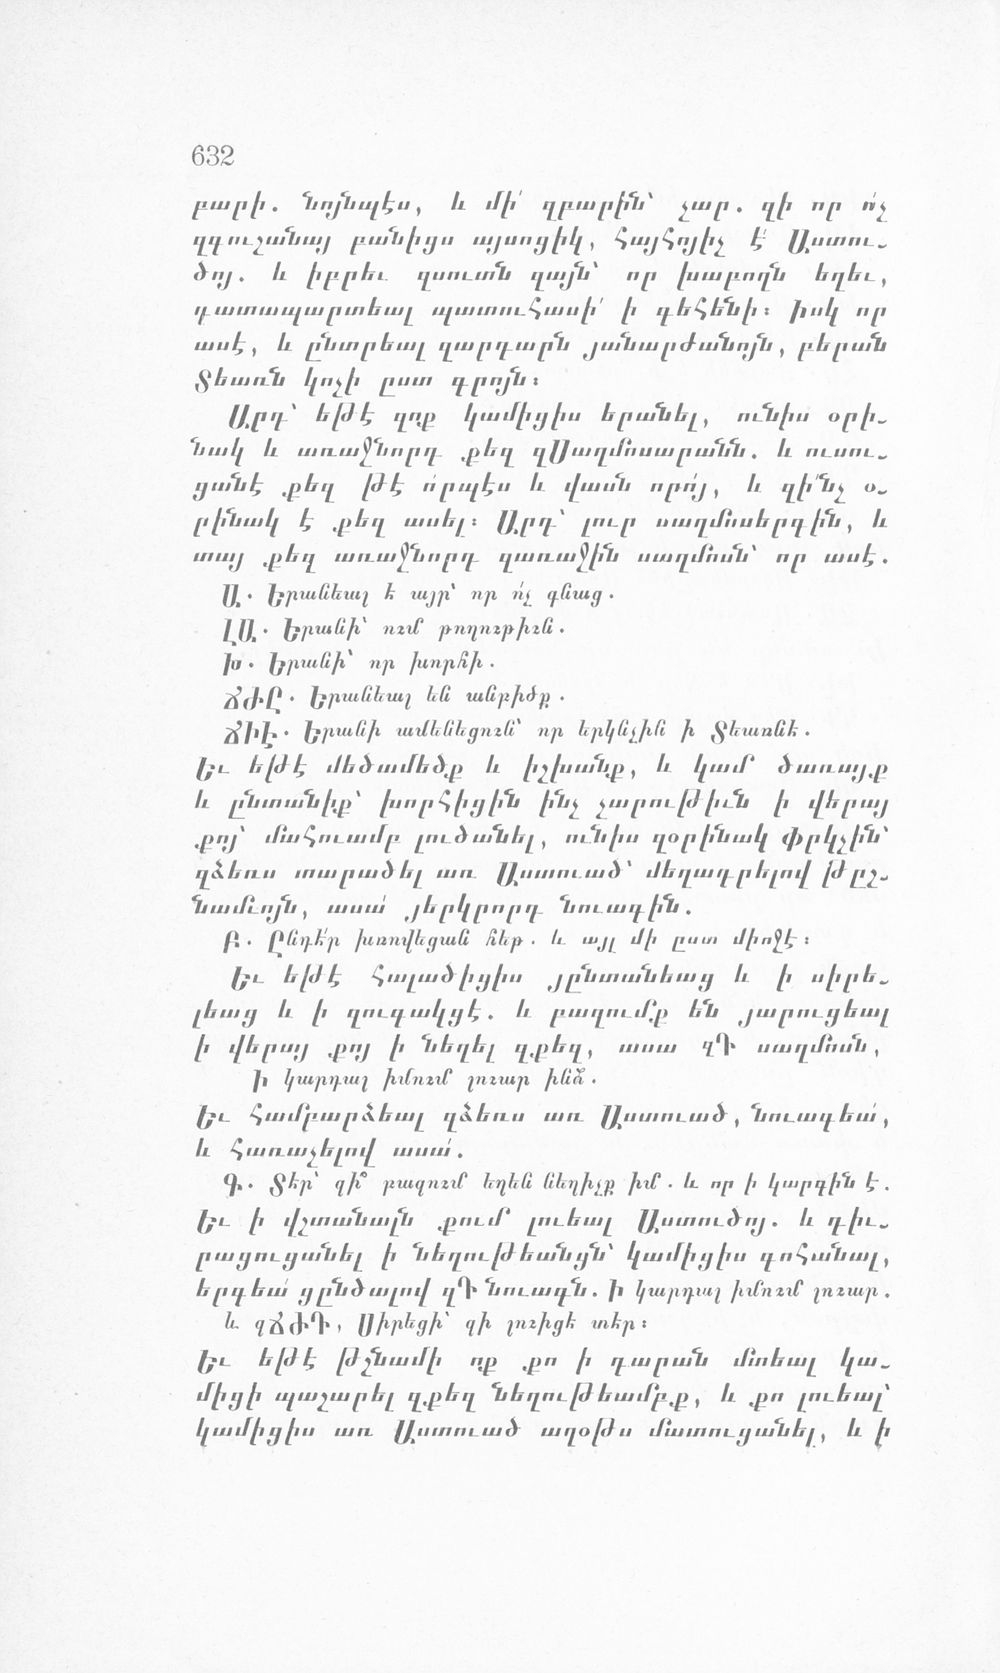 632
բարի. նոյնպէս, և մի՛ զբարին՝ չար. զի որ ո՛չ
զգուշանայ բանիցս այսոցիկ, հայհոյիչ է՛ Աստու-
ծոյ. և իբրեւ զսուտն զայն՝ որ խաբողն եղեւ,
դատապարտեալ պատուհասի՛ ի գեհենի։ Իսկ որ
ասէ, և ընտրեալ զարդարն յանարժանոյն, բերան
Տեառն կոչի ըստ գրոյն։
Արդ՝ եթէ զոք կամիցիս երանել, ունիս օրի-
նակ և առաջնորդ քեզ զՍաղմոսարանն. և ուսու-
ցանէ քեզ թէ ո՛րպէս և վասն որո՛յ, և զի՛նչ օ-
րինակ է քեզ ասել։ Արդ՝ լուր սաղմոսերգին, և
տայ քեզ առաջնորդ զառաջին սաղմոսն՝ որ ասէ.
Ա. Երանեալ է այր՝ որ ո՛չ գնաց.
ԼԱ. Երանի՝ ում թողութիւն.
Խ. Երանի՝ որ խորհի.
ՃԺԸ. Երանեալ են անբիծք.
ՃԻԷ. Երանի ամենեցուն՝ որ երկնչին ի Տեառնէ.
Եւ եթէ մեծամեծք և իշխանք, և կամ ծառայք
և ընտանիք՝ խորհիցին ինչ չարութիւն ի վերայ
քոյ՝ մահուամբ լուծանել, ունիս զօրինակ Փրկչին՝
զձեռս տարածել առ Աստուած՝ մեղադրելով թըշ-
նամւոյն, ասա՛ յերկրորդ նուագին.
Բ. Ընդէ՛ր խռովեցան հեթ. և այլ մի ըստ միոջէ։
Եւ եթէ հալածիցիս յընտանեաց և ի սիրե-
լեաց և ի զուգակցէ. և բազումք են յարուցեալ
ի վերայ քոյ ի նեղել զքեզ, ասա զԴ սաղմոսն,
Ի կարդալ իմում լուար ինձ.
Եւ համբարձեալ զձեռս առ Աստուած, նուագեա՛,
և հառաչելով ասա՛.
Գ. Տէր՝ զի՞ բազում եղեն նեղիչք իմ. և որ ի կարգին է.
Եւ ի վշտանալն քում լուեալ Աստուծոյ. և դիւ-
րացուցանել ի նեղութեանցն՝ կամիցիս գոհանալ,
երգեա՛ ցընծալով զԴ նուագն. Ի կարդալ իմում լուար.
և զՃԺԴ, Սիրեցի՝ զի լուիցէ տէր։
Եւ եթէ թշնամի ոք քո ի դարան մտեալ կա-
միցի պաշարել զքեզ նեղութեամբք, և քո լուեալ՝
կամիցիս առ Աստուած աղօթս մատուցանել, և ի